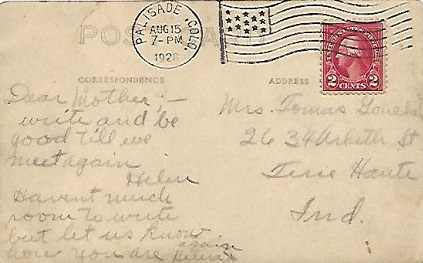 POST CARD
PALISADE COLO.
AUG 15
7-PM
1926
2 CENTS 2
CORRESPONDENCE
ADDRESS
Dear Mother;-
write and be
good till we
meet again
Helen
Havent much
room to write
but let us know again
how you are Helen
Mrs. Tomas
26 34 St
Terre Haute
Ind.